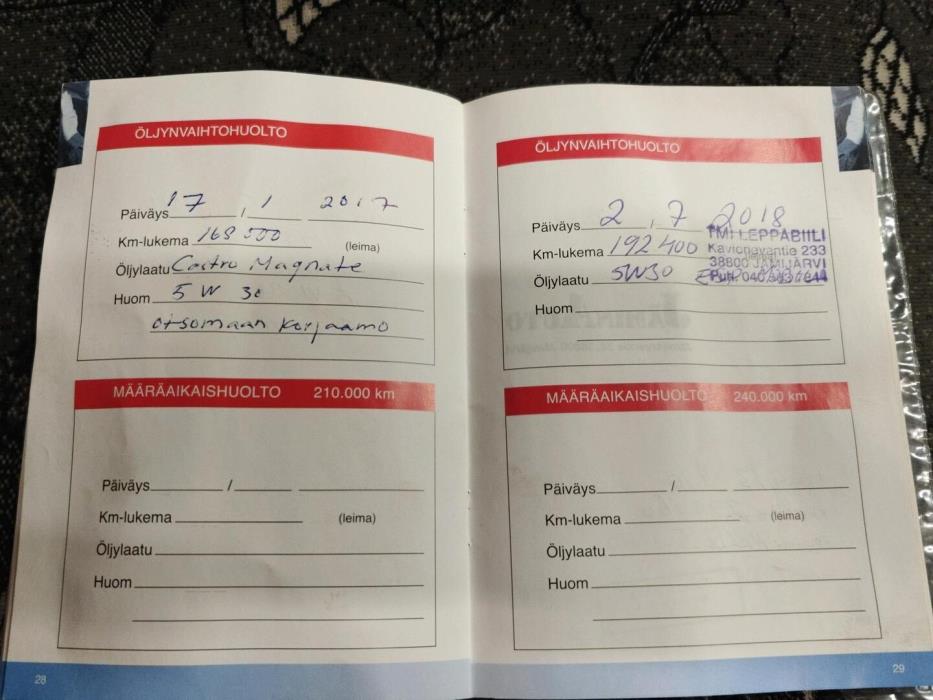 ÖLJYNVAIHTOHUOLTO
Päiväys 17 / 1 2017
Km-lukema 168 500 (leima)
Öljylaatu Castro Magnate
Huom 5 W 30
otsomaan korjaamo
MÄÄRÄAIKAISHUOLTO 210.000 km
Päiväys /
Km-lukema (leima)
Öljylaatu
Huom
28
ÖLJYNVAIHTOHUOLTO
Päiväys 2 . 7 2018
TMI LEPPÄBIILI
Km-lukema 192 400
233
38800 JÄMIJÄRVI
Öljylaatu 5W30
Puh.
Huom
MÄÄRÄAIKAISHUOLTO 240.000 km
Päiväys /
Km-lukema (leima)
Öljylaatu
Huom
29